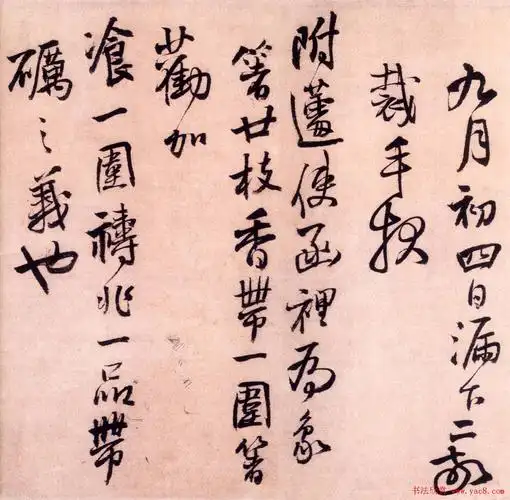 九月初四日漏下二刻
裁手狀
附蘧使函裡為象
箸廿枝香帶一圍箸
勸加
湌一圍禱兆一品帶
礪之義也
书法欣赏 www.yac8.com